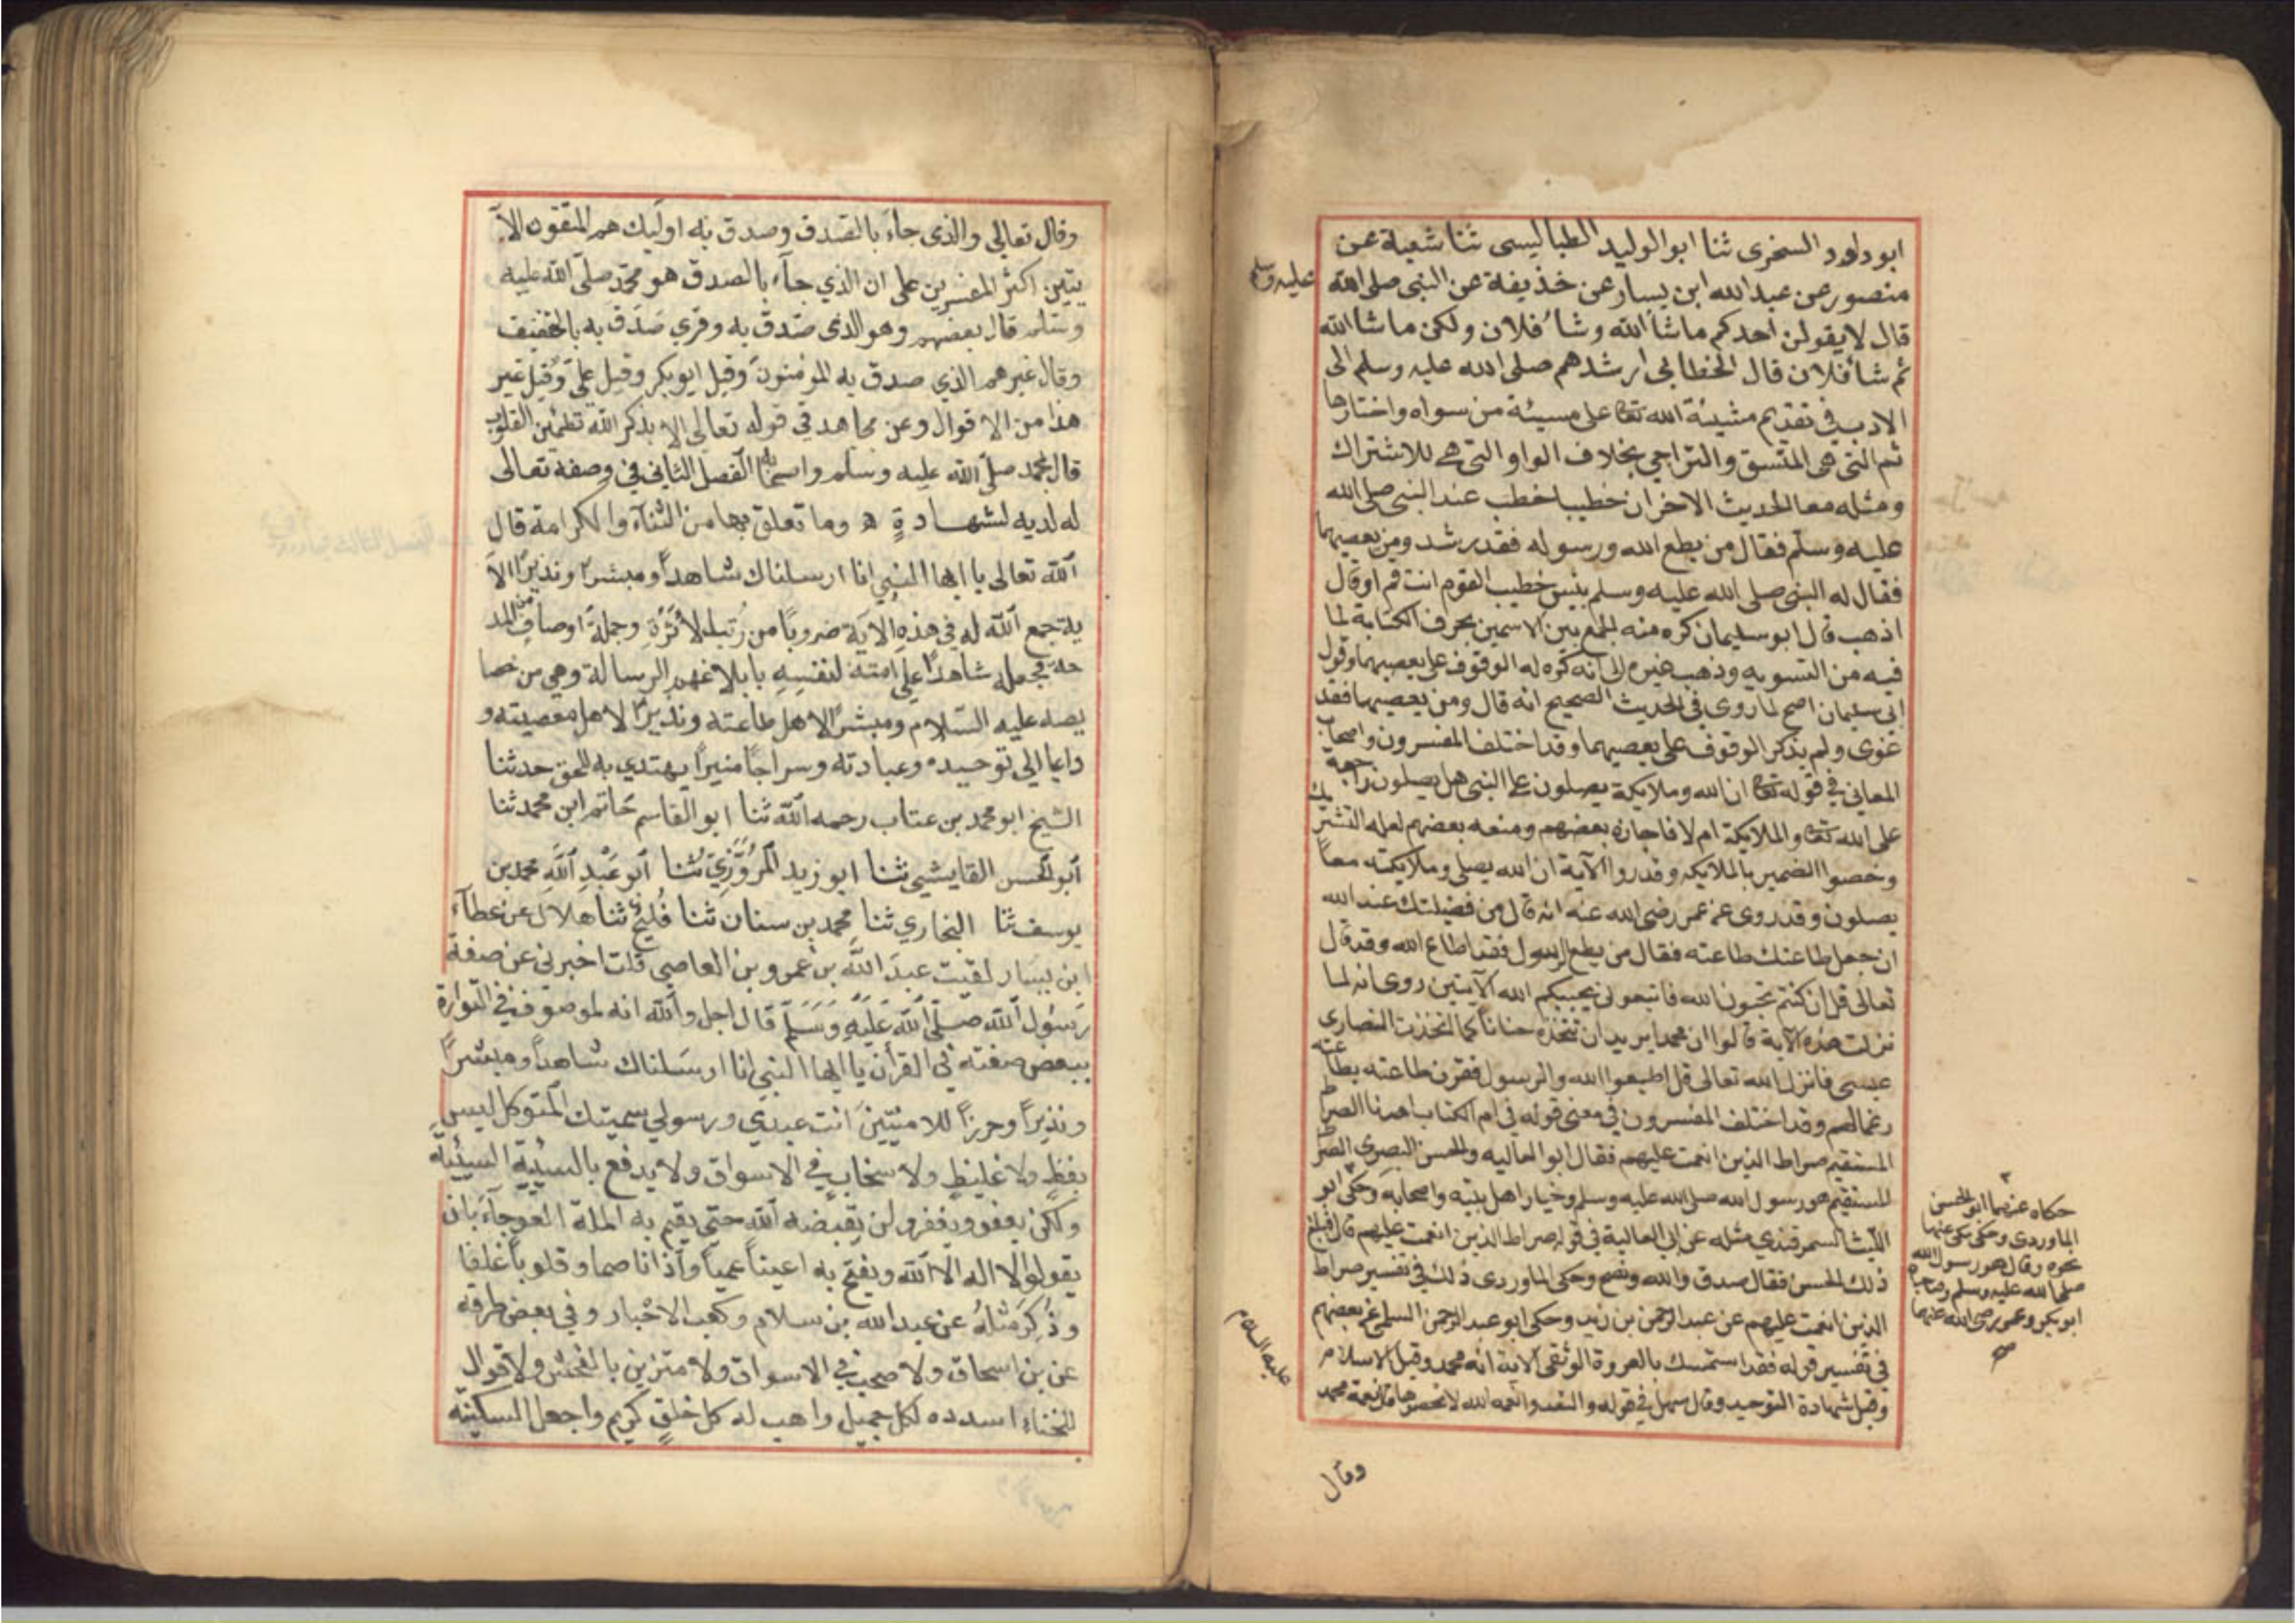 ابو داود السخرى ثنا ابو الوليد الطيا ليسى ثنا شعبة عن
منصور عن عبد الله ابن يسار عن حذيفة عن النبى صلى الله
عليه وسلم
قال لا يقولن احدكم ما شأ الله وشأ فلان ولكن ما شا الله
ثم شأ فلان قال الخطابى ارشدهم صلى الله عليه وسلم الى
الادب فى تقديم مشيئة الله تعا على مسيئة من سواه واختارها
ثم التى هى للنسق والتراجي بخلاف الواو التى هى للاشتراك
ومثله معا الحديث الاخر ان خطيبا خطب عند النبى صلى الله
عليه وسلم فقال من يطع الله ورسوله فقد رشد ومن يعصيهما
فقال له النبى صلى الله عليه وسلم بئس خطيب القوم انت قم او قال
اذهب قال ابو سليمان كره منه الجمع بين الاسمين بحرف الكتابة لما
فيه من التسويه وذهب غيره الى انه كره له الوقوف على يعصيهما وقول
ابى سليمان اصح لما روى فى الحديث الصحيح انه قال ومن يعصيهما فقد
غوى ولم يذكر الوقوف على يعصيهما وقد اختلف المفسرون واصحاب
المعانى فى قوله تعا ان الله وملايكة يصلون على النبى هل يصلون راجعة
على الله تعا والملايكة ام لا فاجازه بعضهم ومنعه بعضهم لعله التشريك
وخصوا الضمير بالملايكه وقدروا الآية ان الله يصلى وملايكته معاً
يصلون وقد روى عن عمر رضى الله عنه انه قال من فضيلتك عند الله
ان جعل طاعتك طاعته فقال من يطع الرسول فقد اطاع الله وقد قال
تعالى قل ان كنتم تحبون الله فاتبعونى يحببكم الله الآيتين روى انه لما
نزلت هذه الآية قالوا ان محمدا يريد ان نتخذه حنانا كما اتخذت النصارى
عيسى فانزل الله تعالى قل اطيعوا الله والرسول فقرن طاعته بطاعته
رغما لهم وقد اختلف المفسرون فى معنى قوله فى ام الكتاب اهدنا الصراط
المستقيم صراط الذين انعمت عليهم فقال ابو العاليه والحسن البصرى الصراط
المستقيم هو رسول الله صلى الله عليه وسلم وخيار اهل بيته واصحابه وحكى ابو
الليث السمرقندي مثله عن ابى العالية فى قوله صراط الذين انعمت عليهم قال فبلغ
ذلك الحسن فقال صدق والله ونصح وحكى الماوردى ذلك فى تفسير صراط
الذين انعمت عليهم عن عبد الرحمن بن زيد وحكى ابو عبد الرحمن السلمى عن بعضهم
فى تفسير قوله فقد استمسك بالعروة الوثقى الاية انه محمد وقيل الاسلام
وقيل شهادة التوحيد وقال سهل فى قوله وان تعدوا نعمه الله لا تحصوها قال نعمة محمد
عليه السلام
حكاه عنهما ابو الحسن
الماوردى وحكى مكى عنهما
نحوه وقال هو رسول الله
صلى الله عليه وسلم وصاحباه
ابو بكر وعمر رضى الله عنهما
وقال
وقال تعالى والذى جآء بالصدق وصدق به اولئك هم المتقون الآ
يتين اكثر المفسرين على ان الذي جآء بالصدق هو محمد صلى الله عليه
وسلم قال بعضهم وهو الذى صدق به وقرى صَدَق به بالتخفيف
وقال غيرهم الذي صدق به المومنون وقيل ابو بكر وقيل على وقيل غير
هذا من الاقوال وعن مجاهد فى قوله تعالى الا بذكر الله تطمئن القلوب
قال بمحمد صلى الله عليه وسلم واصحابه الفصل الثاني في وصفه تعالى
له لديه لشهادةٍ وما تعلق بها من الثنآء والكرامة قال
الله تعالى يا ايها النبي انا ارسلناك شاهداً ومبشراً ونذيراً الا
ية جمع الله له في هذه الاية ضروباً من رُتبه لاثرة وجملة اوصاف من المد
حة فجعله شاهداً على امته لنفسه بابلاغهم الرسالة وهي من خصا
يصه عليه السلام ومبشراً لاهل طاعته ونذيراً لاهل معصيته و
داعيا الي توحيده وعبادته وسراجاً منيراً يهتدي به للحق حدثنا
الشيخ ابو محمد بن عتاب رحمه الله ثنا ابو القاسم حَاتم ابن محمد ثنا
أبو الحسن القابسي ثنا ابو زيد المروَزِيّ ثنا أبو عَبْدِ اللَّهِ محمد بن
يوسف ثنا البخاري ثنا محمد بن سنان ثنا فُليح ثنا هلال عن عطآء
ابن يسار لقيت عبدَ اللَّه بن عمرو بن العاصى قلت اخبرنى عن صفة
رَسُول الله صلّى الله عَليهِ وَسَلم قال اجل والله انه لموصوف فى التوارة
ببعض صفته في القرأن يا ايها النبي انا ارسلناك شاهداً ومبشراً
ونذيراً وحرزاً للاميّين أنت عبدي ورسولي سميتك المتوكل ليس
بفظٍ ولا غليظٍ ولا سخابٍ في الاسواق ولا يدفع بالسيّية السيئية
ولكن يعفو ويغفر ولن يقبضه الله حتى يقيم به الملة العوجآءَ بان
يقولوا لا اله الّا الله ويفتح به اعيناً عمياً وأذانا صما وقلوباً غلفا
وذُكِرَ مثلهُ عن عبد الله بن سلام وكعب الاحبار وفي بعض طرقه
عن بن اسحاق ولا صحب في الاسواق ولا متزين بالفحش ولا قوال
للخناء اسدده لكل جميل واهب له كل خلقٍ كريم واجعل السكينه